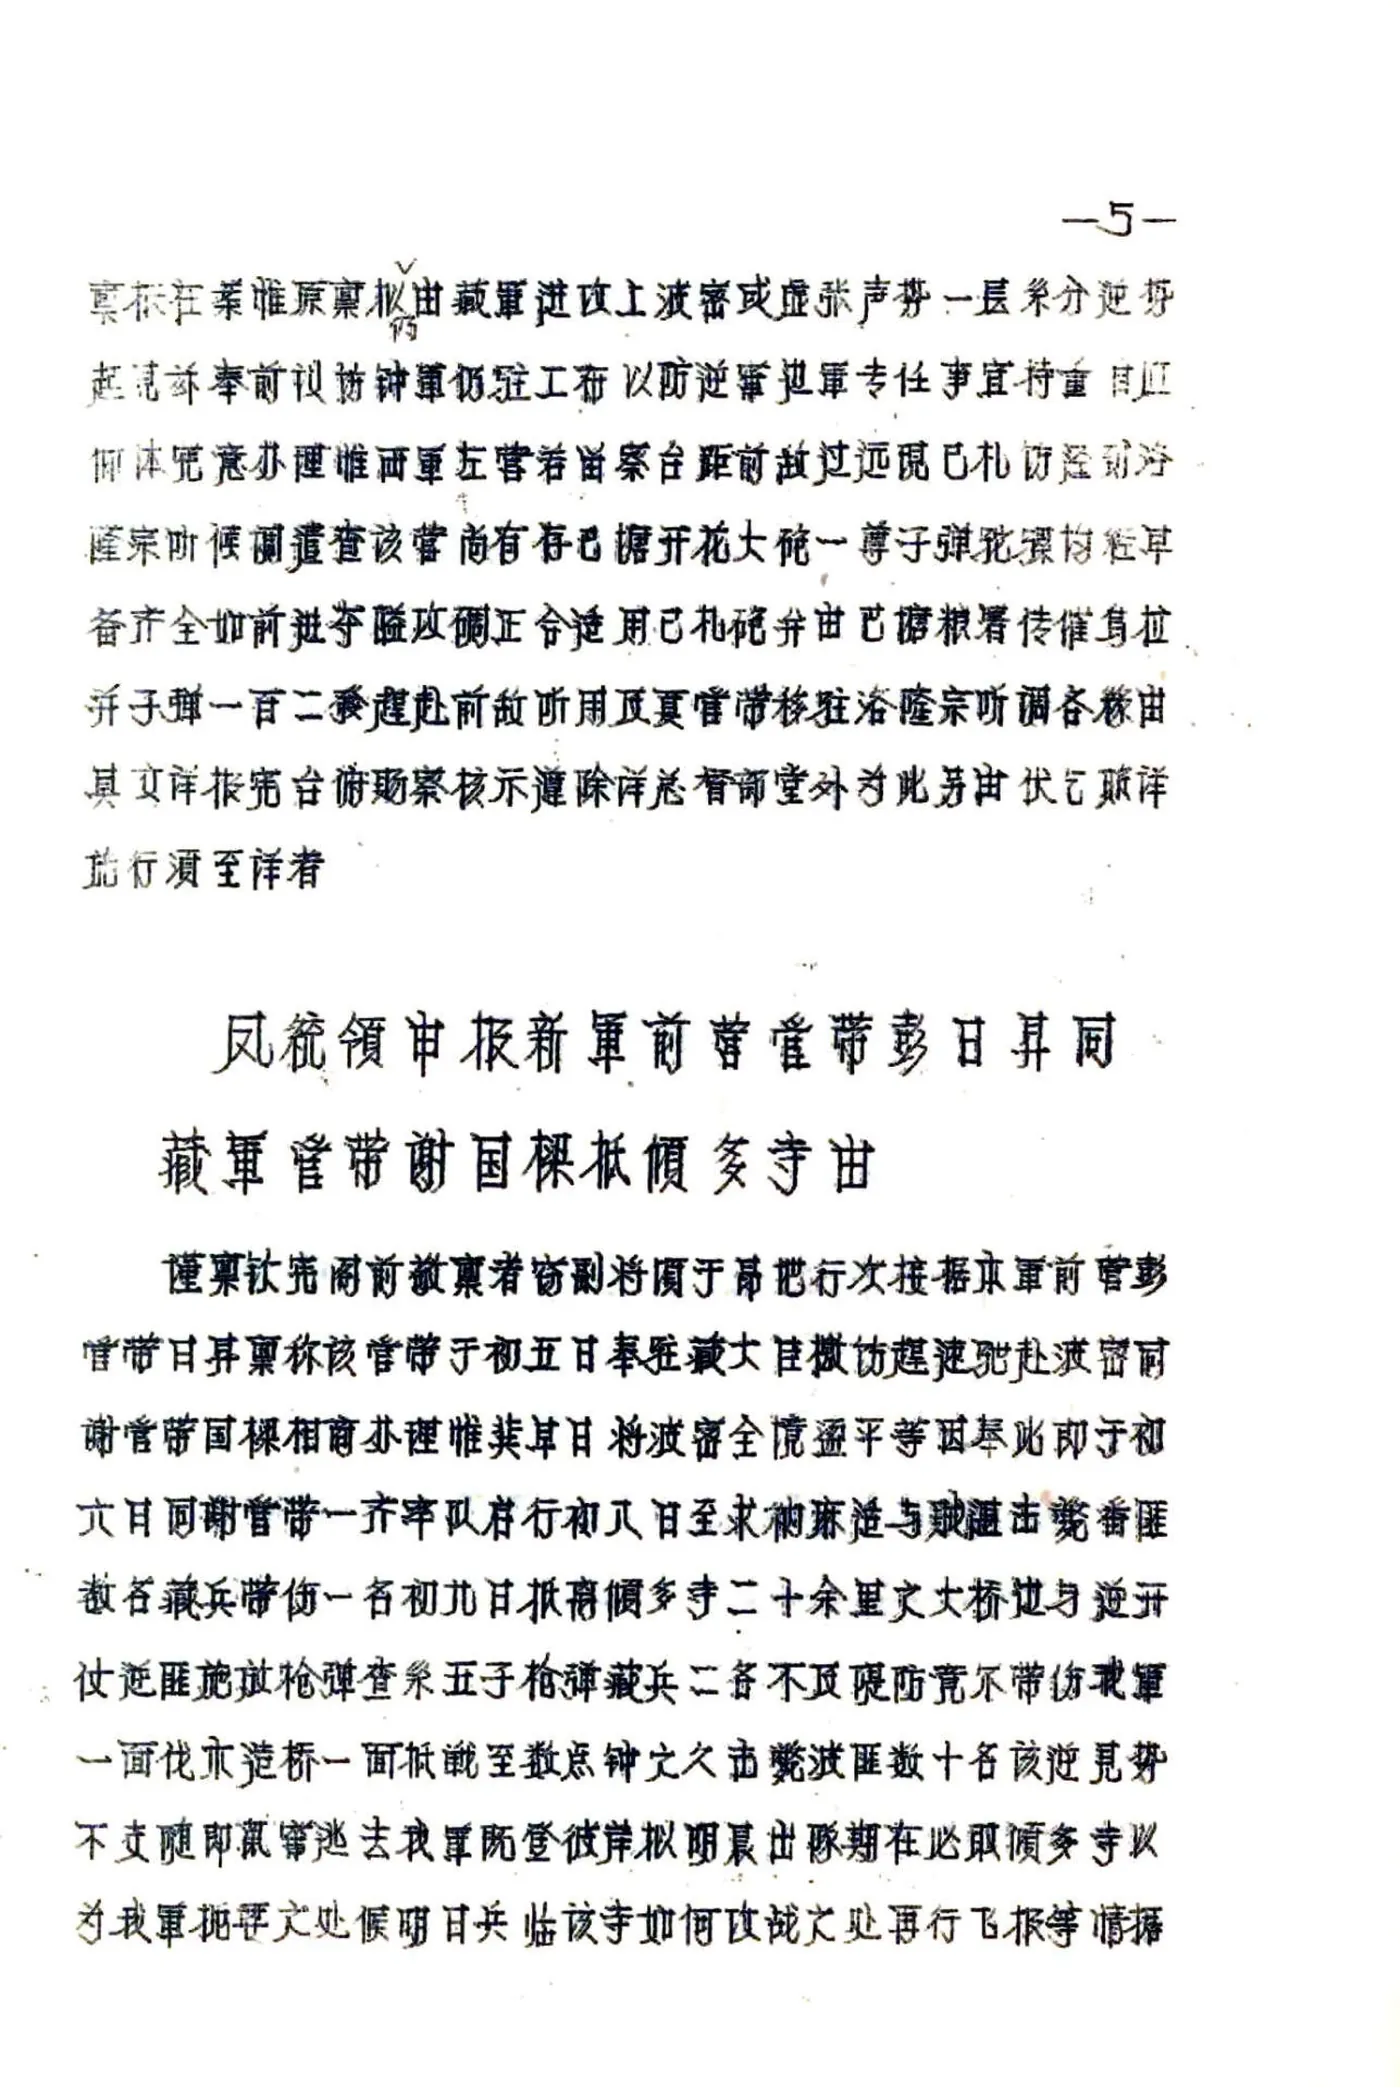 —5—
禀报在案惟原禀拟仍由藏軍进攻上波密或虚张声势一层系分逆势
起見并奉前议饬钟軍仍驻工布以防逆窜边軍专任事宜持重自应
仰体宪意办理惟西軍左营若留察台距前敌过远現已札饬逕到洛
隆宗听候调遣查该营尚有存巴塘开花大砲一尊子弹驼骡均经早
备齐全如前进夺隘攻碉正合适用已札砲弁由巴塘粮署传催烏拉
并子弹一百二发趕赴前敌听用及夏管带移驻洛隆宗听调各缘由
具文详报宪台俯赐察核示遵除详总督部堂外为此另由伏乞照详
施行须至详者
凤统領申报新軍前营管带彭日昇同
藏軍管带谢国樑抵傾多寺由
谨禀钦宪阁前敬禀者窃副将顷于昂地行次接据本軍前营彭
管带日昇禀称该管带于初五日奉驻藏大臣檄饬趕速驰赴波密同
谢管带国樑相商办理惟冀早日将波密全境盪平等因奉此即于初
六日同谢管带一齐率队启行初八日至求纳麻造与贼遇击毙番匪
数名藏兵带伤一名初九日抵离傾多寺二十余里之大桥边与逆开
仗逆匪施放枪弹查系五子枪弹藏兵二名不及隄防竟尔带伤我軍
一面伐木造桥一面抵戰至数点钟之久击毙波匪数十名该逆見势
不支随即鼠窜逃去我軍既登彼岸拟明晨出队期在必取傾多寺以
为我軍扼要之处候明日兵临该寺如何攻战之处再行飞报等情据